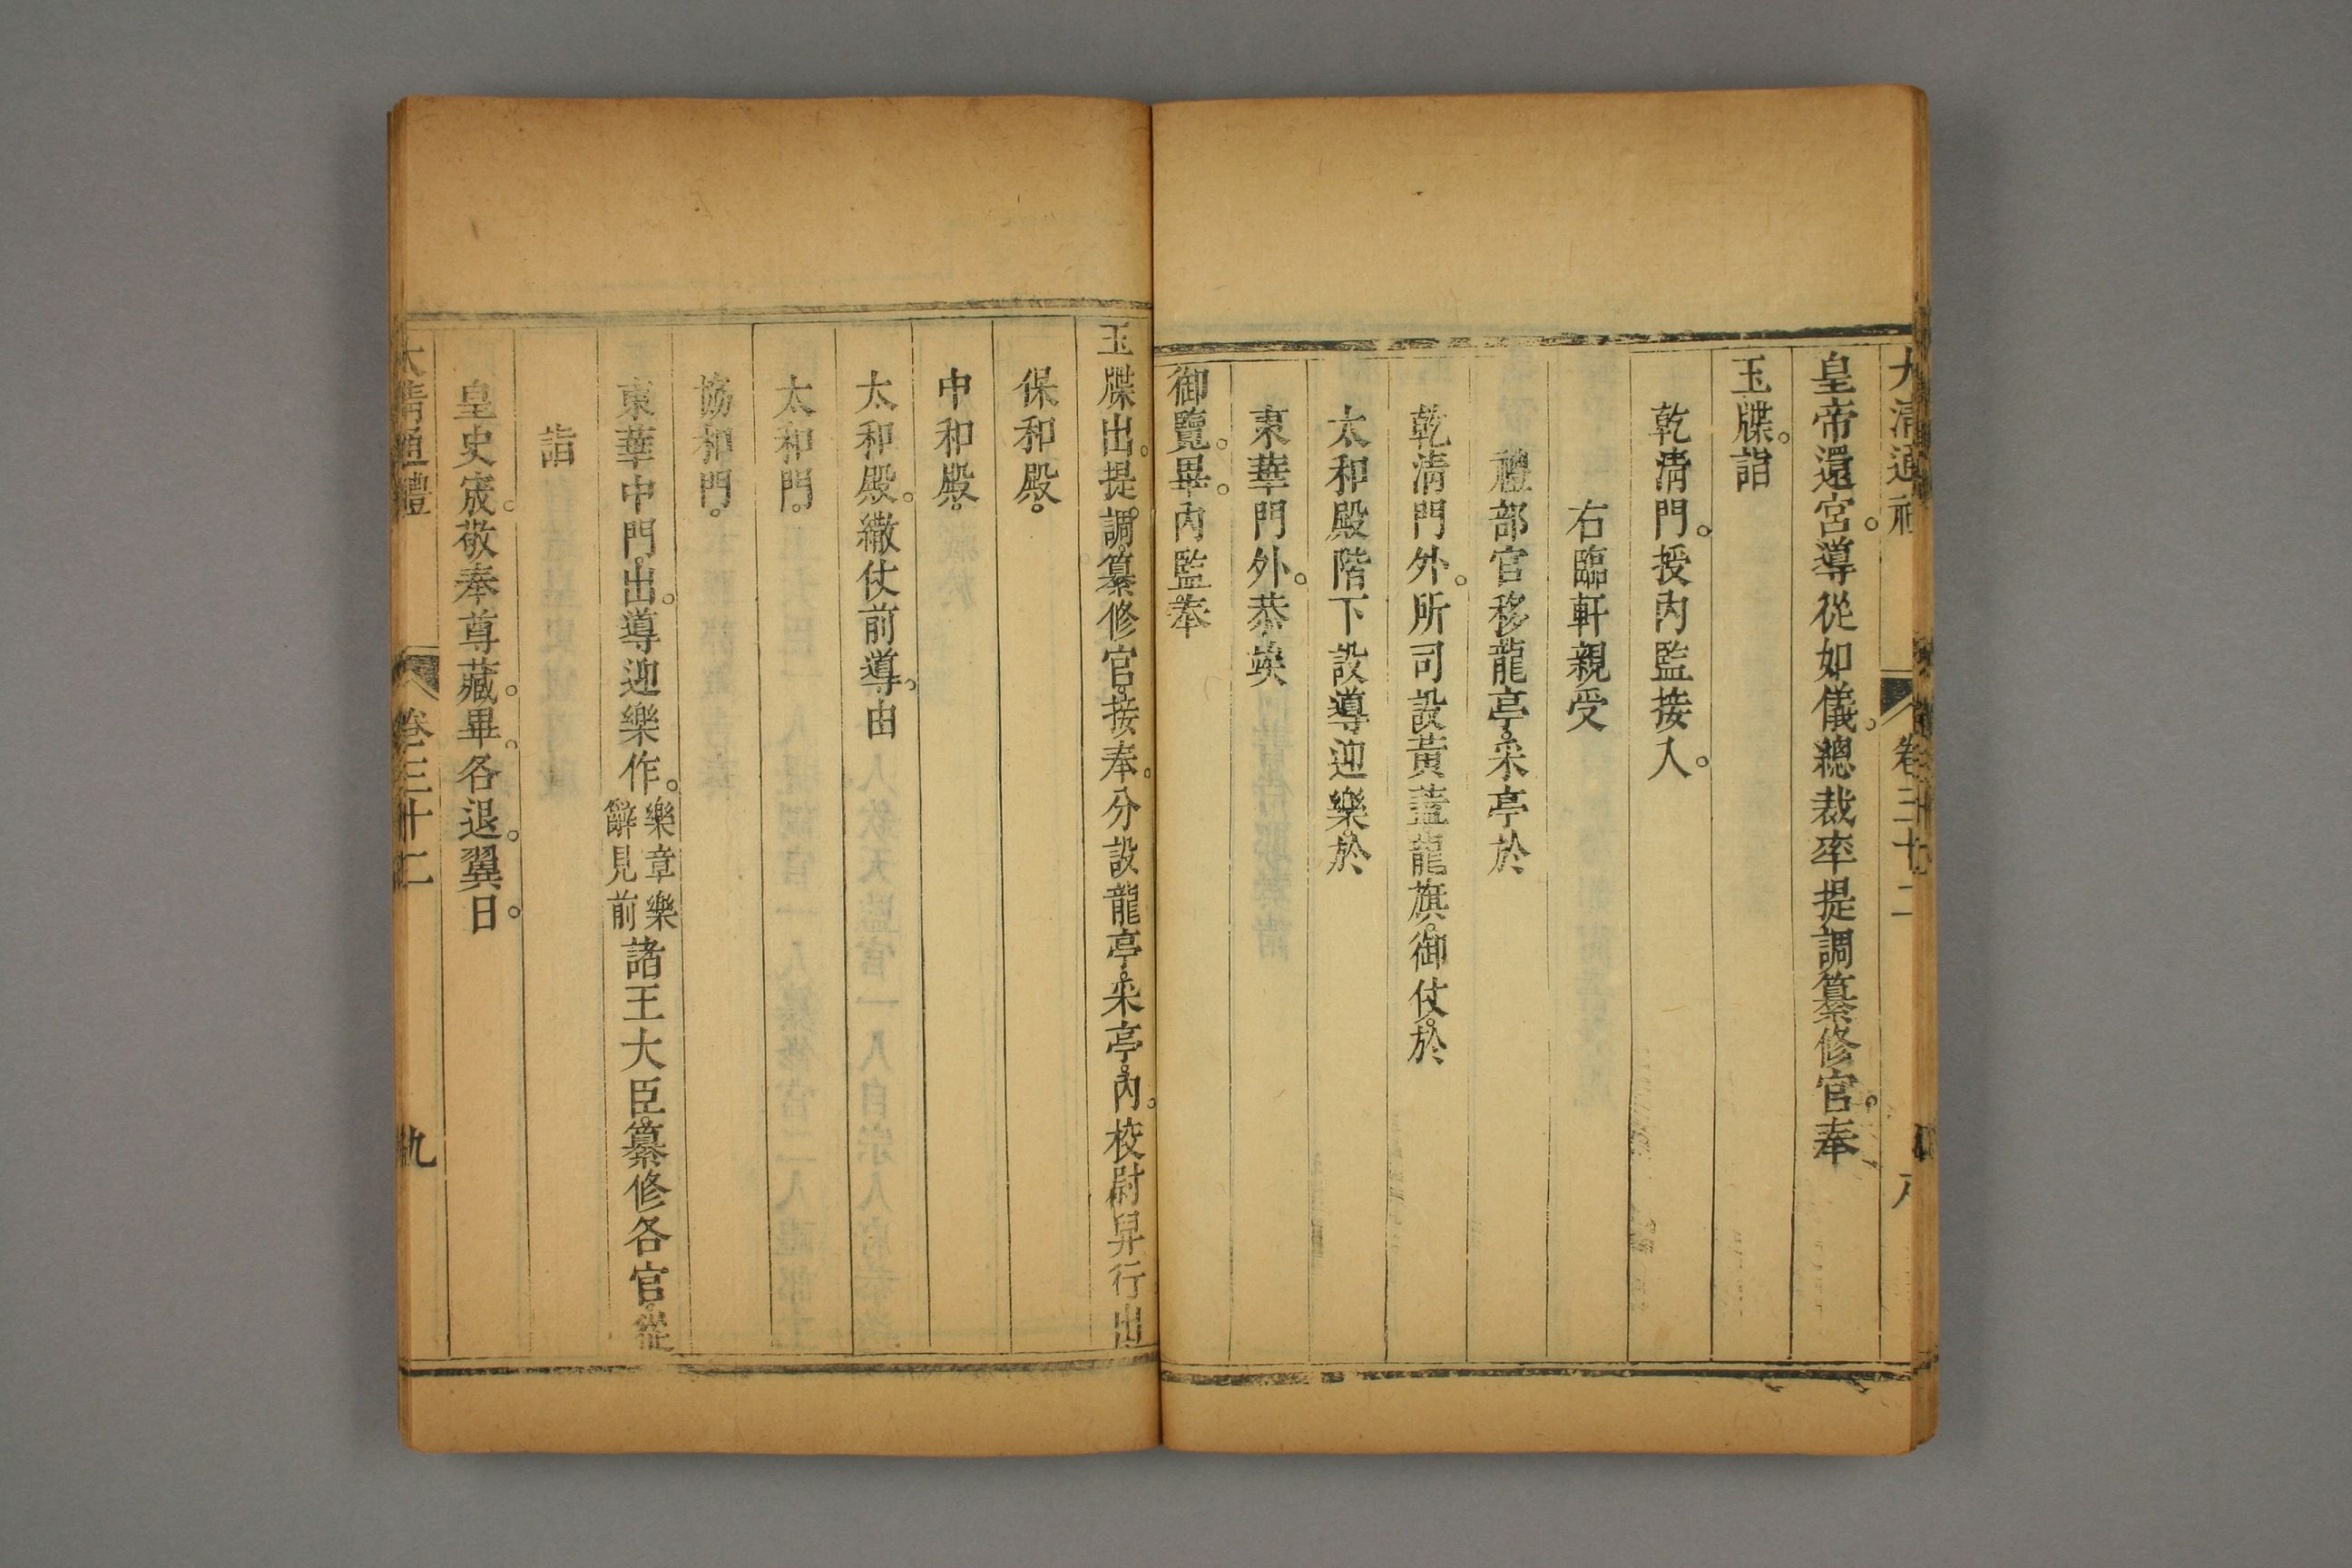 大清通禮 卷三十二 八
皇帝還宮。導從如儀。總裁率提調纂修官。奉
玉牒。詣
乾清門。授內監接入。
右臨軒親受
禮部官移龍亭。采亭於
乾清門外。所司設黃蓋龍旗。御仗。於
太和殿階下設導迎樂。於
東華門外。恭竢
御覽。畢。內監奉
玉牒出。提。調。纂修官。接奉。分設龍亭。采亭。內。校尉舁行出
保和殿。
中和殿。
太和殿。繖仗前導。由
太和門。
協和門。
東華中門。出。導迎樂作。樂章樂辭見前諸王大臣。纂修各官。從
詣
皇史宬。敬奉尊藏。畢。各退。翼日。
大清通禮 卷三十二 九